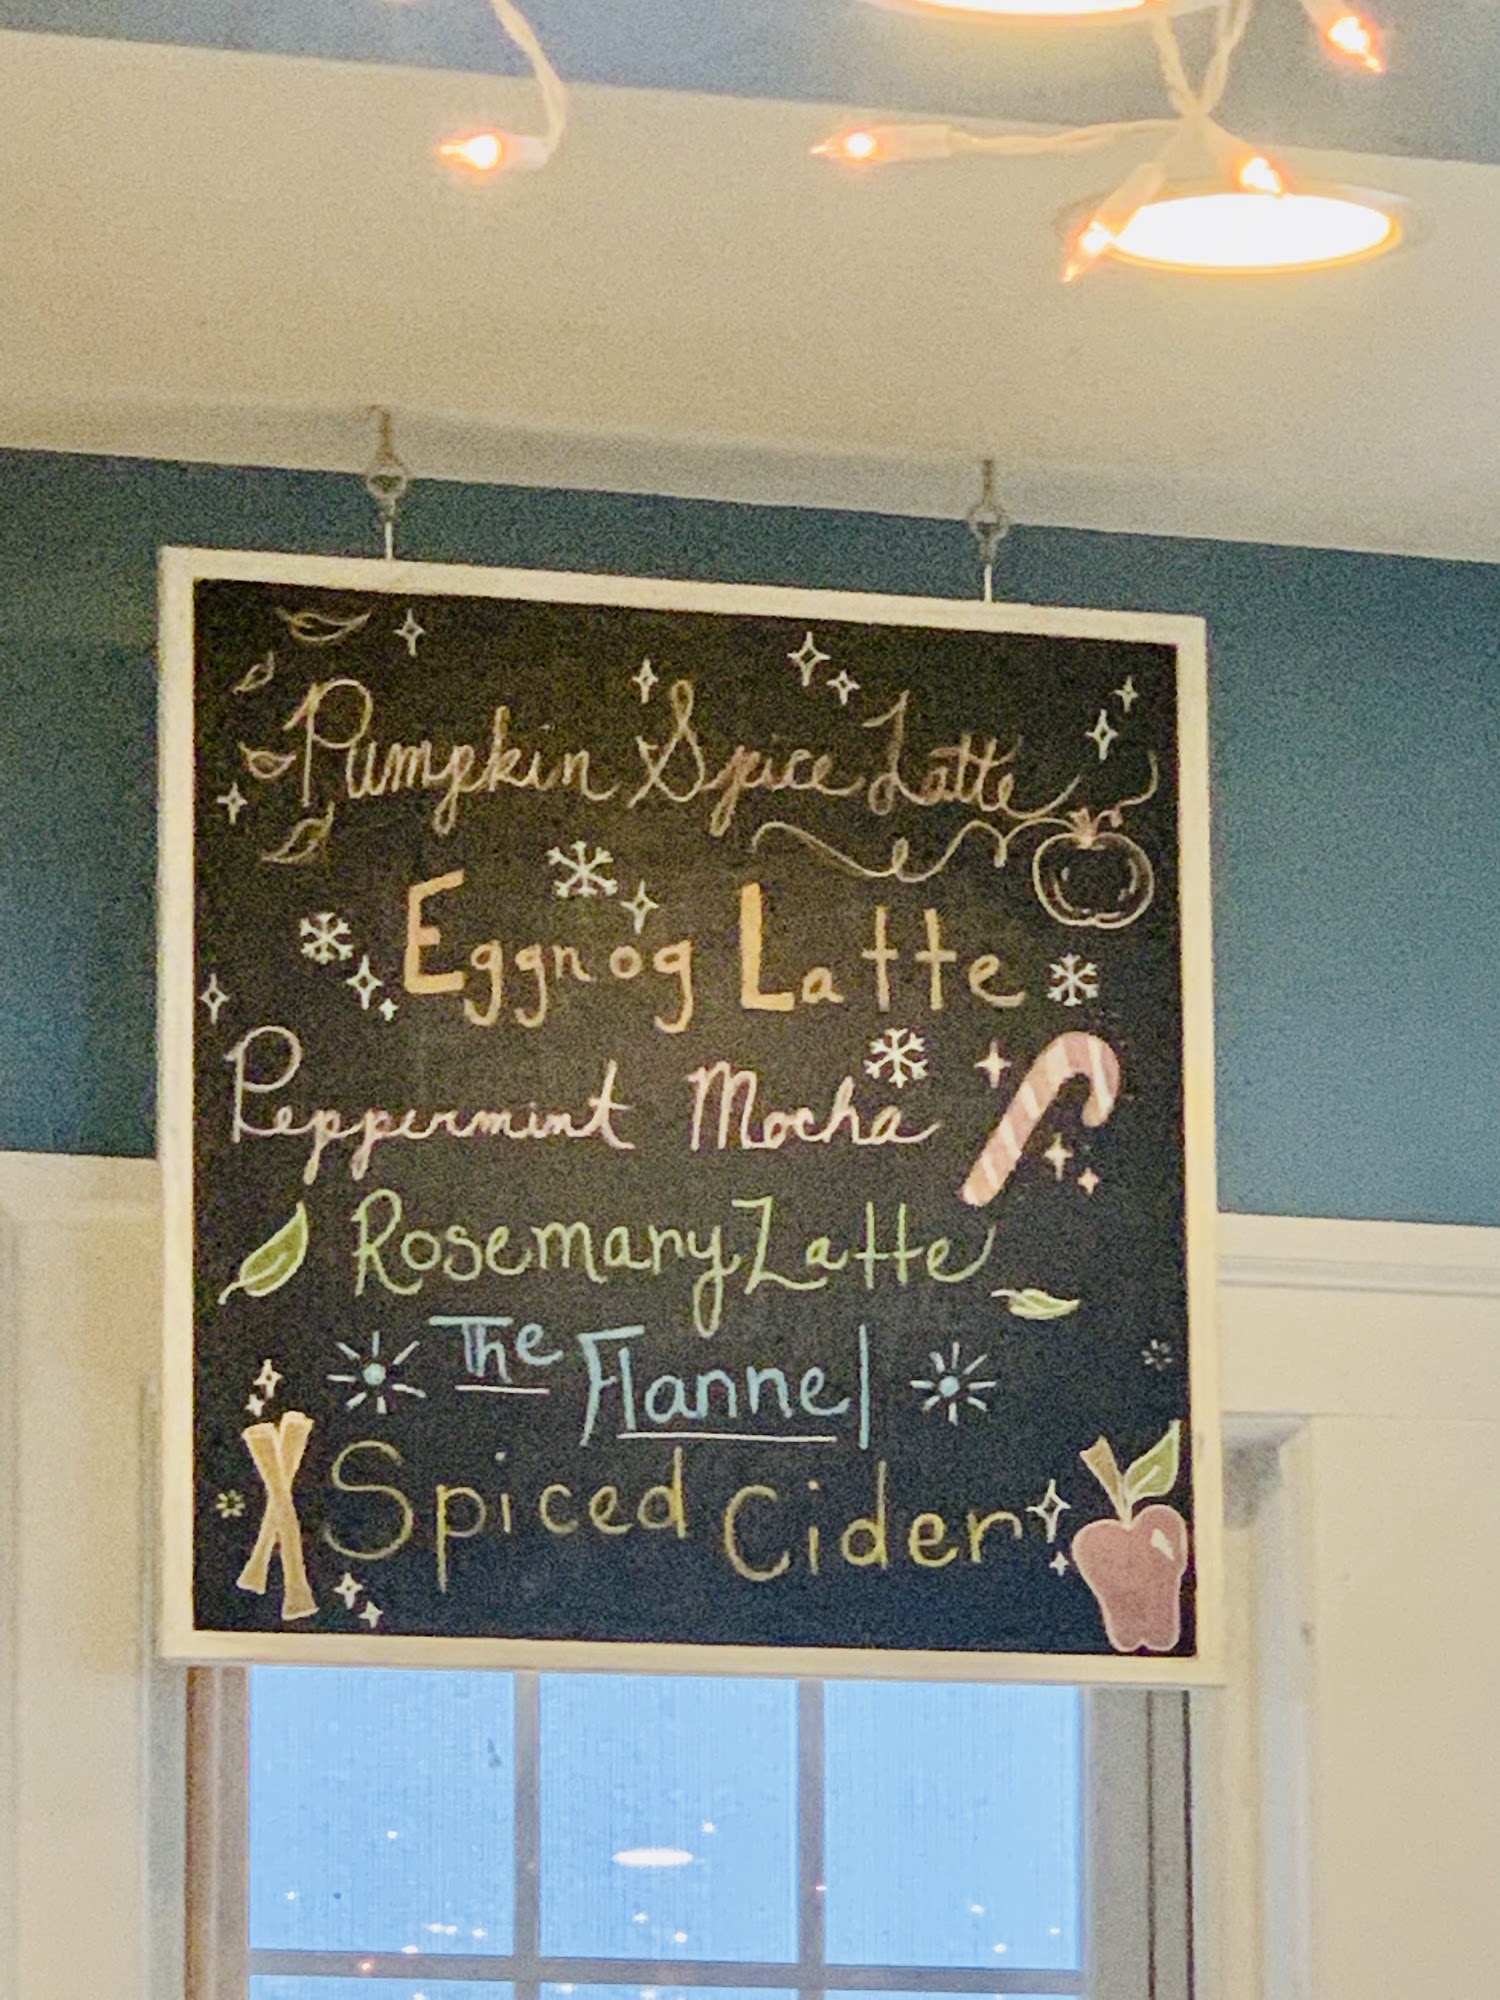 Pumpkin Spice Latte
Eggnog Latte
Peppermint Mocha
Rosemary Latte
The Flannel
Spiced Cider